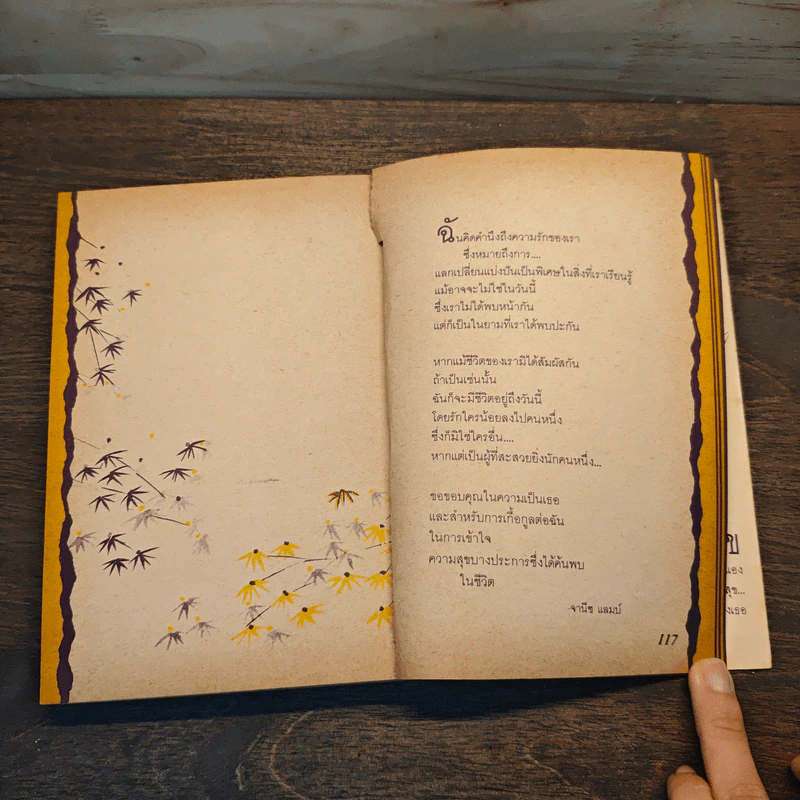 ฉันคิดคำนึงถึงความรักของเรา
ซึ่งหมายถึงการ....
แลกเปลี่ยนแบ่งปันเป็นพิเศษในสิ่งที่เราเรียนรู้
แม้อาจจะไม่ใช่ในวันนี้
ซึ่งเราไม่ได้พบหน้ากัน
แต่ก็เป็นในยามที่เราได้พบปะกัน
หากแม้ชีวิตของเรามิได้สัมผัสกัน
ถ้าเป็นเช่นนั้น
ฉันก็จะมีชีวิตอยู่ถึงวันนี้
โดยรักใครน้อยลงไปคนหนึ่ง
ซึ่งก็มิใช่ใครอื่น....
หากแต่เป็นผู้ที่สะสวยยิ่งนักคนหนึ่ง...
ขอขอบคุณในความเป็นเธอ
และสำหรับการเกื้อกูลต่อฉัน
ในการเข้าใจ
ความสุขบางประการซึ่งได้ค้นพบ
ในชีวิต
-จานีซ แลมบ์
117